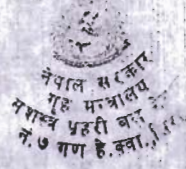 नेपाल सरकार
गृह मन्त्रालय
सशस्त्र प्रहरी बल
नं. ७ गण हे.क्वा.,